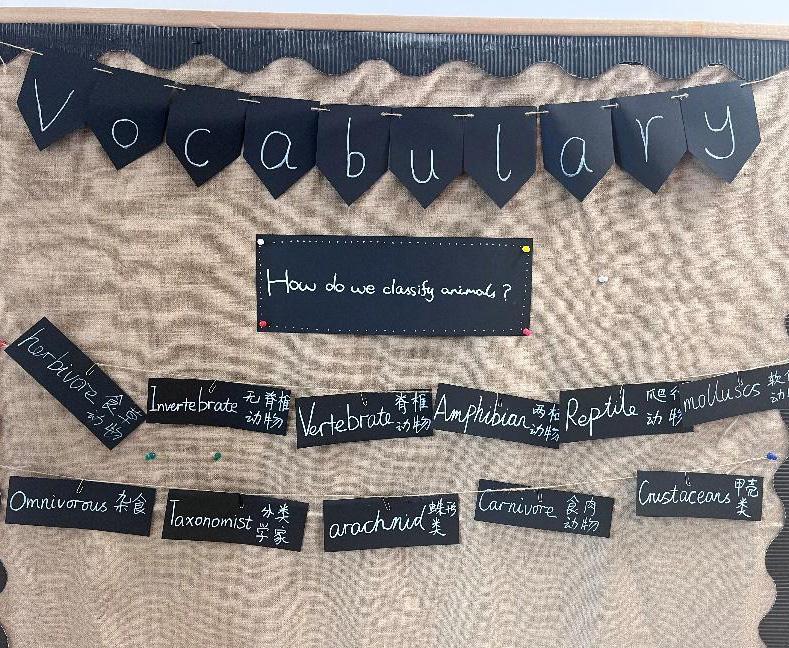 Vocabulary
How do we classify animals?
herbivore 食草
动物
Invertebrate 无脊椎
动物
Vertebrate 脊椎
动物
Amphibian 两栖
动物
Reptile 爬行
动物
molluscs 软体
动
Omnivorous 杂食
Taxonomist 分类
学家
arachnid 蛛形
类
Carnivore 食肉
动物
Crustaceans 甲壳
类